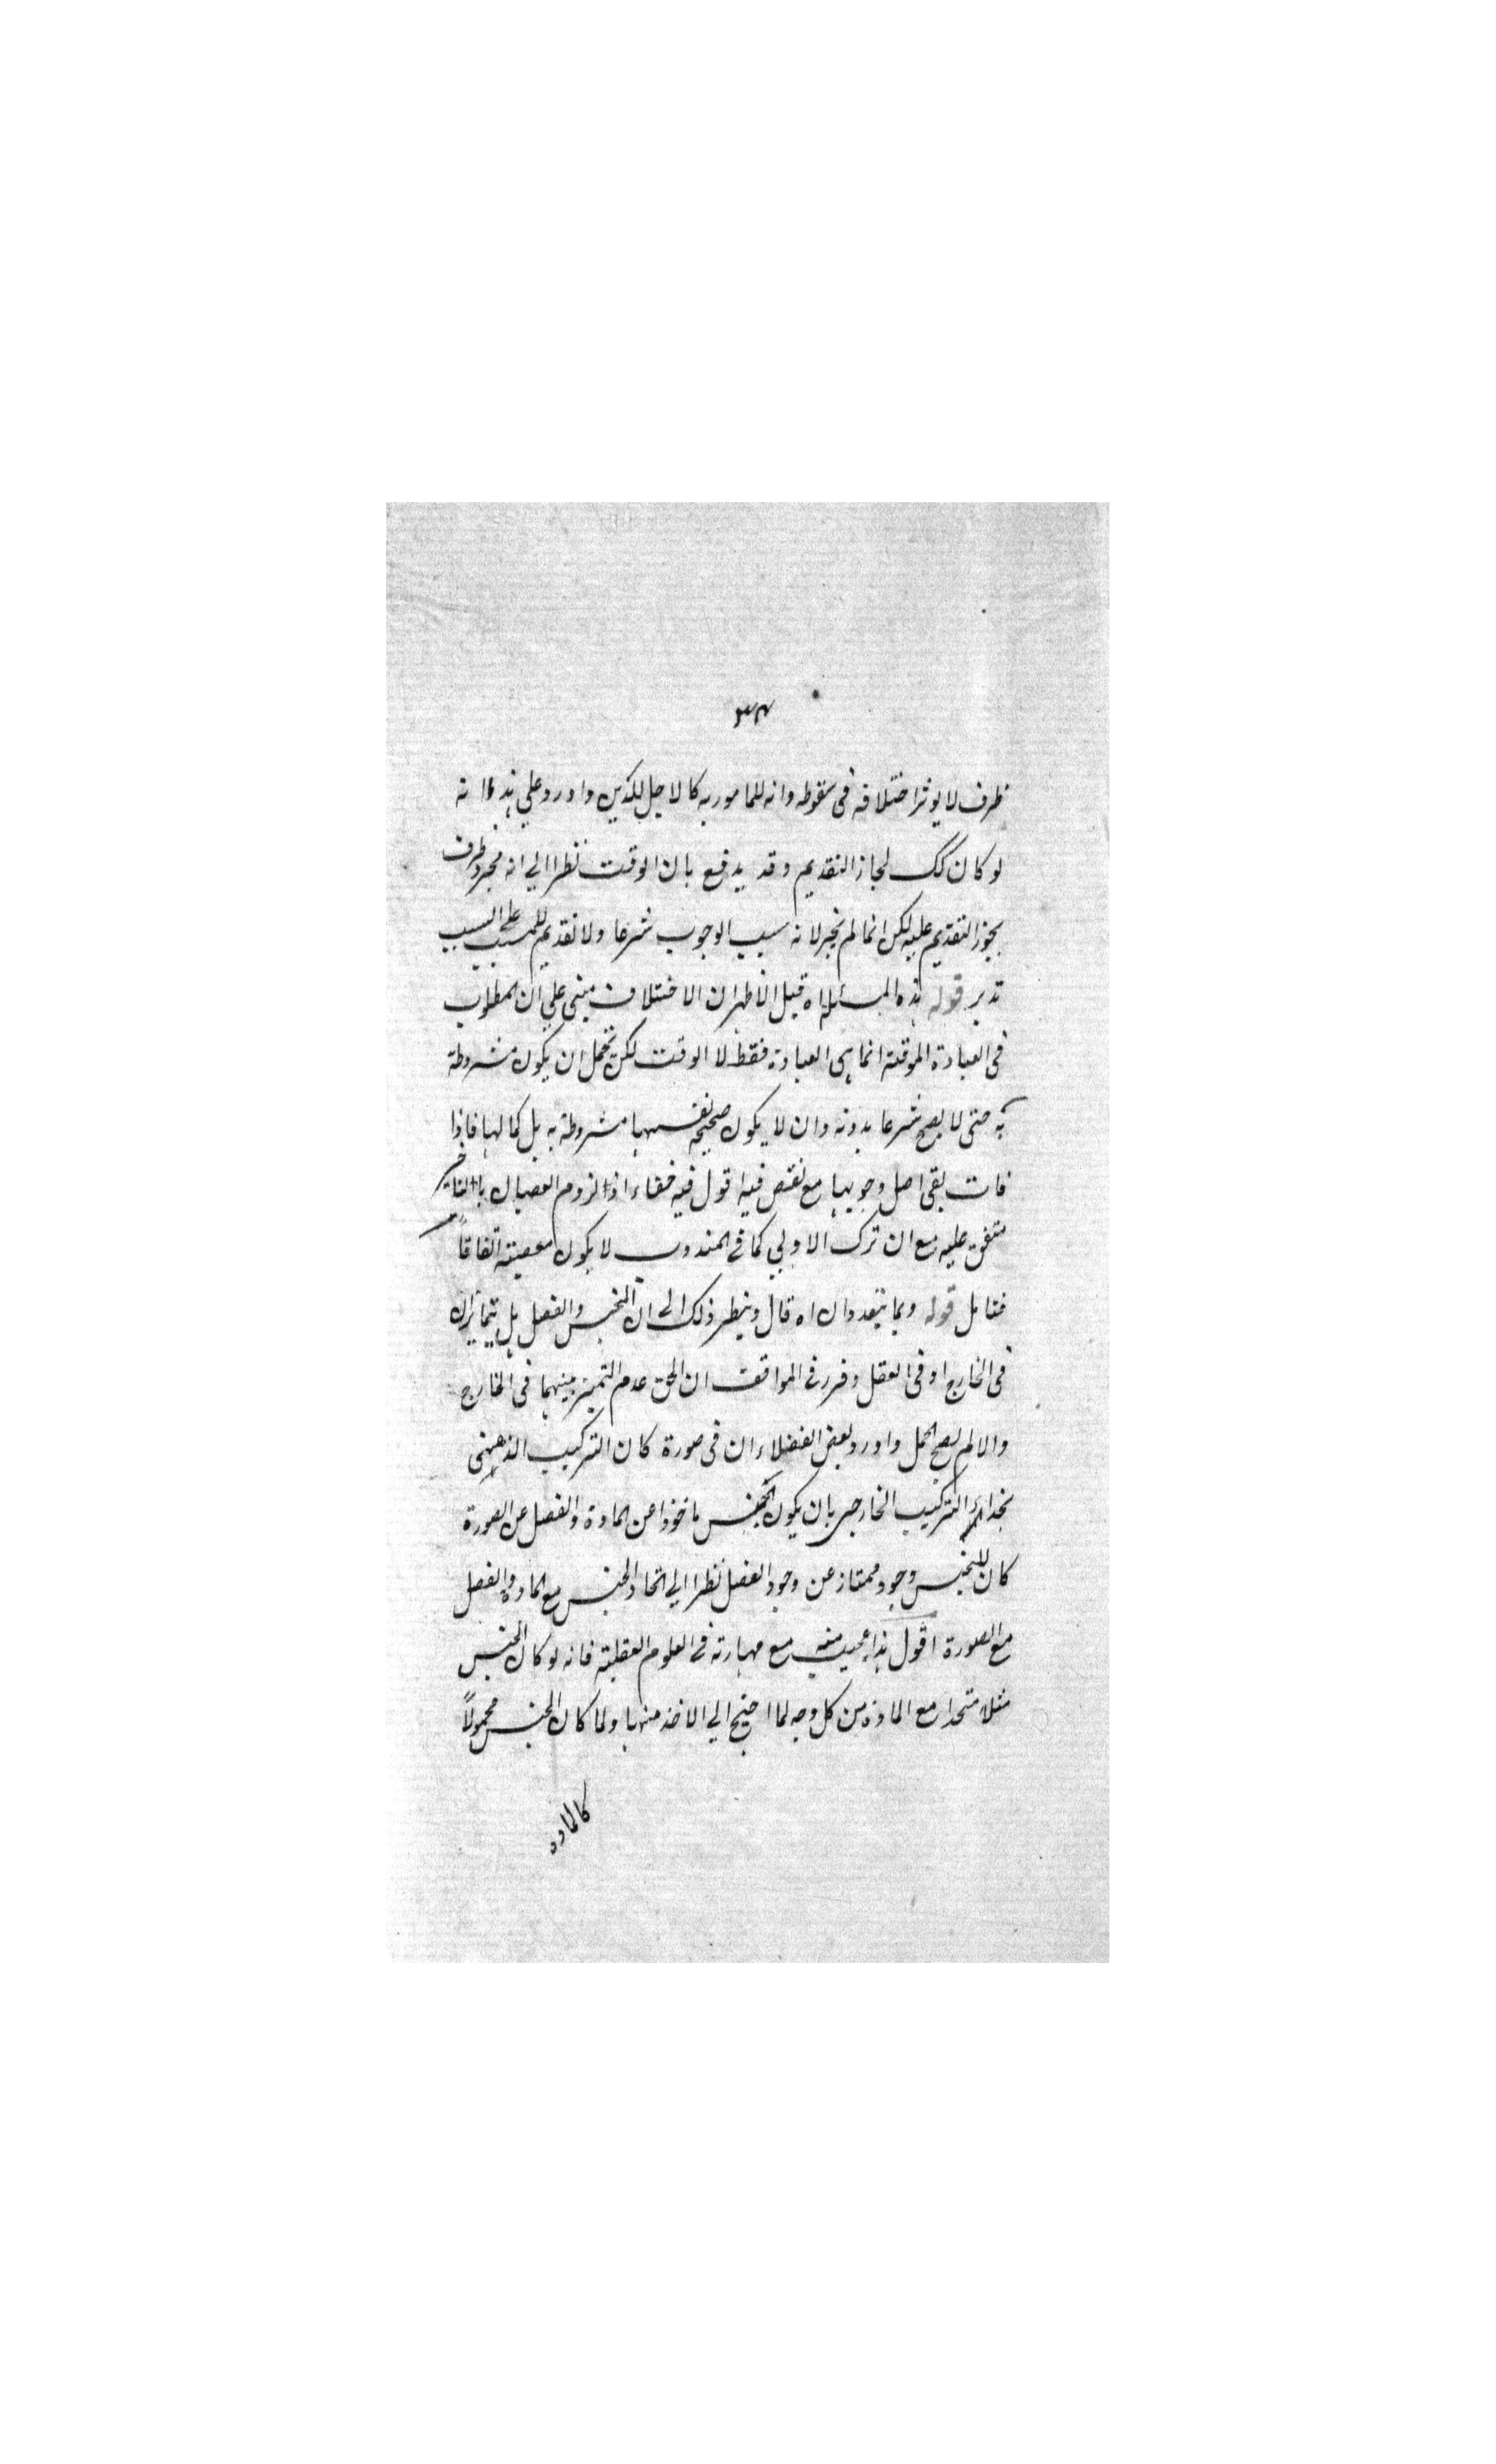 ٣٤
ظرف لا يوثر اختلافه فى سقوطه وانه للمامور به كالاجل للدين واورد علي هذا انه
لو كان كك لجاز التقديم وقد يدفع بان الوقت نظرا الي انه مجرد ظرف
يجوز التقديم عليه لكن انما لم يجز لانه سبب الوجوب شرعا ولا تقديم للمسبب على السبب
تدبر قوله هذه المسئلة اه قيل الاظهر ان الاختلاف مبني علي ان المطلوب
فى العبادة الموقتة انما هى العبادة فقط لا الوقت لكن يحتمل ان يكون مشروطة
به حتى لا يصح شرعا بدونه وان لا يكون صحيحة نفسها مشروطة به بل كمالها فاذا
فات بقى اصل وجوبها مع نقص فيه اقول فيه خفاء اذ لزوم العصيان بالتاخير
متفق عليه مع ان ترك الاولي كما فى المندوب لا يكون معصيته اتفاقاً
فتامل قوله وبما يتعددان اه قال وينظر ذلك الى ان الجنس والفصل هل يتمايزان
فى الخارج او فى العقل وقرر فى المواقف ان الحق عدم التميز بينهما فى الخارج
والا لم يصح الحمل واورد بعض الفضلاء ان فى صورة كان التركيب الذهنى
بحذاء التركيب الخارجى بان يكون الجنس ماخوذا عن المادة والفصل عن الصورة
كان للجنس وجود ممتاز عن وجود الفصل نظرا الي اتحاد الجنس مع المادة والفصل
مع الصورة اقول هذا عجيب منه مع مهارته فى العلوم العقلية فانه لو كان الجنس
مثلا متحدا مع المادة من كل وجه لما احتيج الي الاخذ منها ولما كان الجنس محمولاً
كالمادة